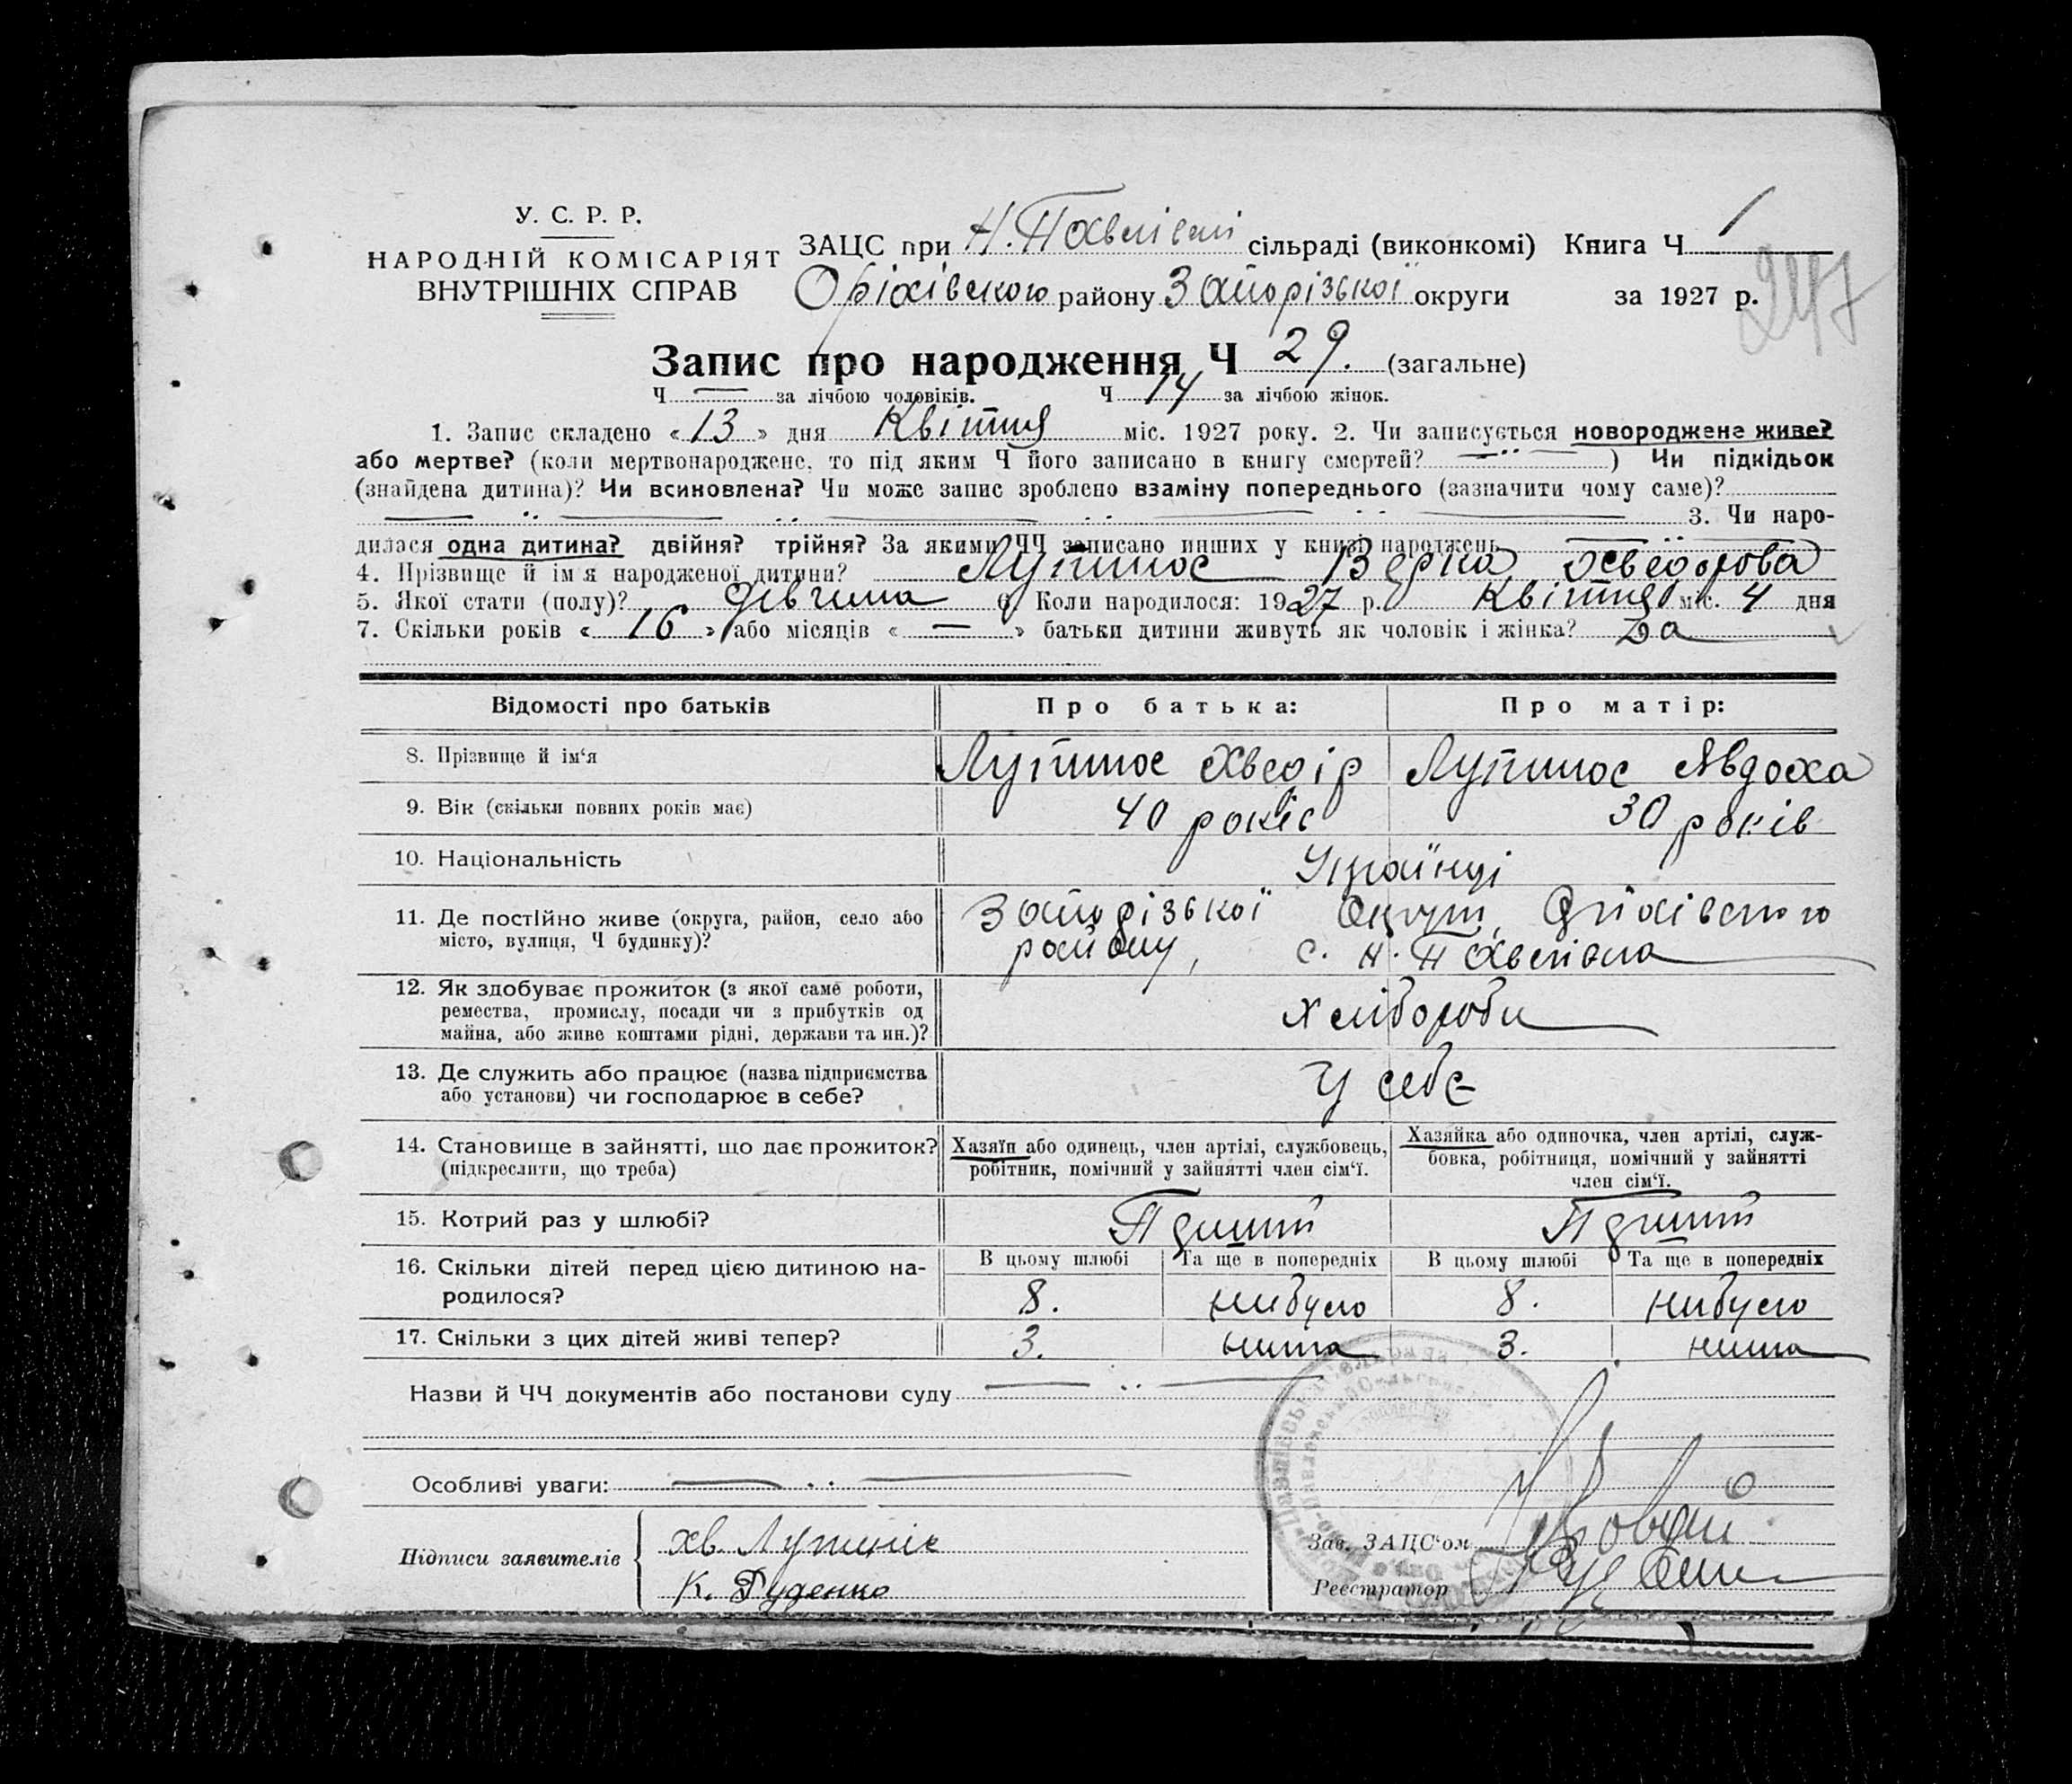 У. С. Р. Р.
НАРОДНІЙ КОМІСАРІЯТ
ВНУТРІШНІХ СПРАВ
ЗАЦС при Н. Павлівкі сільраді (виконкомі) Книга Ч 1
Оріхівского району Запорізької округи за 1927 р.
247
Запис про народження Ч 29. (загальне)
Ч — за лічбою чоловіків. Ч 14 за лічбою жінок.
1. Запис складено «13» дня Квітня міс. 1927 року. 2. Чи записується новороджене живе?
або мертве? (коли мертвонароджене, то під яким Ч його записано в книгу смертей? — " —) Чи підкідьок
(знайдена дитина)? Чи всиновлена? Чи може запис зроблено взаміну попереднього (зазначити чому саме)?
3. Чи наро-
дилася одна дитина? двійня? трійня? За якими ЧЧ записано инших у книзі народжень
4. Прізвище й ім'я народженої дитини? Лупинос Верка Хведорова
5. Якої стати (полу)? дівчина 6. Коли народилося: 1927 р. Квітня міс. 4 дня
7. Скільки років «16» або місяців «—» батьки дитини живуть як чоловік і жінка? Да
Відомості про батьків Про батька: Про матір:
8. Прізвище й ім'я Лупинос Хведір Лупинос Явдоха
9. Вік (скільки повних років має) 40 років 30 років
10. Національність Українці
11. Де постійно живе (округа, район, село або Запорізької Округи, Оріхівского
місто, вулиця, Ч будинку)? району, с. Н. Павлівка
12. Як здобуває прожиток (з якої саме роботи,
ремества, промислу, посади чи з прибутків од хлібороби
майна, або живе коштами рідні, держави та ин.)?
13. Де служить або працює (назва підприємства У себе
або установи) чи господарює в себе?
14. Становище в зайнятті, що дає прожиток? Хазяїн або одинець, член артілі, службовець, Хазяйка або одиночка, член артілі, служ-
(підкреслити, що треба) робітник, помічний у зайнятті член сім'ї. бовка, робітниця, помічний у зайнятті
член сім'ї.
15. Котрий раз у шлюбі?
В цьому шлюбі Та ще в попередніх В цьому шлюбі Та ще в попередніх
16. Скільки дітей перед цією дитиною на-
родилося? 8. нибуло 8. нибуло
17. Скільки з цих дітей живі тепер? 3. нима 3. нима
Назви й ЧЧ документів або постанови суду
Особливі уваги:
Підписи заявителів хв. Лупиніс
К. Руденко
Зав. ЗАЦС'ом
Реєстратор